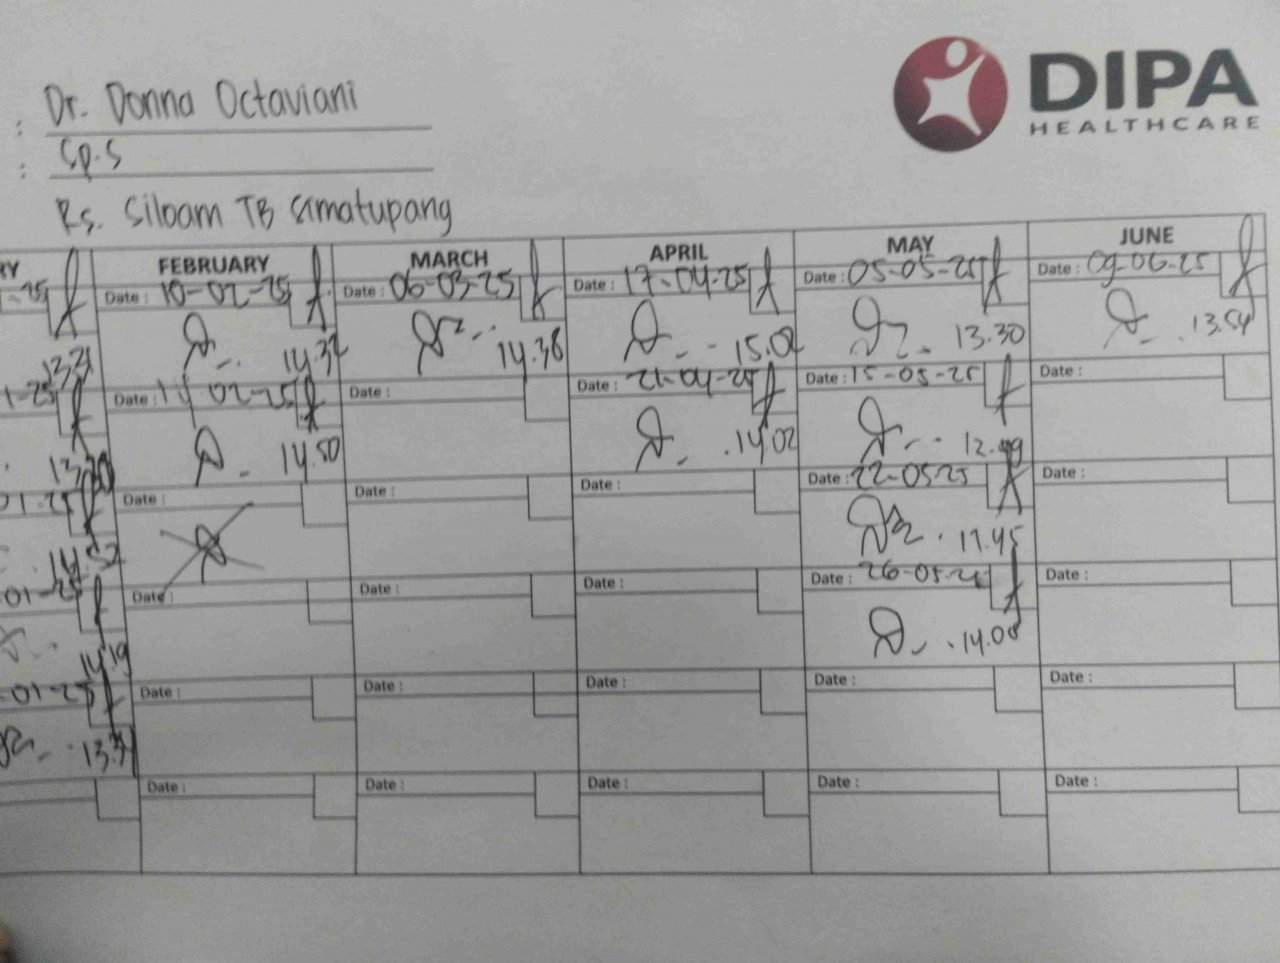 DIPA
HEALTHCARE
: Dr. Donna Octaviani
: Sp.S
Rs. Siloam TB Simatupang
RY FEBRUARY MARCH APRIL MAY JUNE
Date : 10-02-25 Date : 06-03-25 Date : 17-04-25 Date : 05-05-25 Date : 09-06-25
14.32 14.38 15.02 13.30 13.54
Date : 14 02-25 Date : Date : 21-04-25 Date : 15-05-25 Date :
13.20 14.50 14.02 12.49
01-25 Date : Date : Date : Date : 22-05-25 Date :
14.52 17.45
01-25 Date : Date : Date : Date : 26-05-25 Date :
14.19 14.08
-01-25 Date : Date : Date : Date : Date :
13.31
Date : Date : Date : Date : Date :